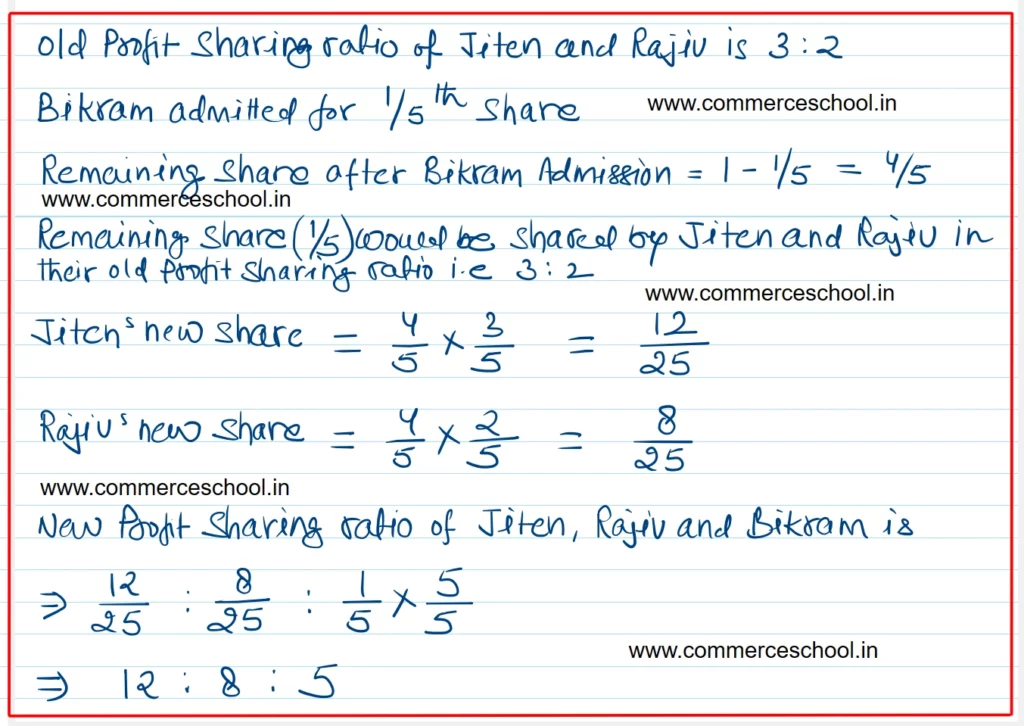 Old Profit Sharing ratio of Jiten and Rajiv is 3 : 2
Bikram admitted for 1/5th Share
www.commerceschool.in
Remaining Share after Bikram Admission = 1 - 1/5 = 4/5
www.commerceschool.in
Remaining Share (1/5) would be shared by Jiten and Rajiv in
their old profit sharing ratio i.e 3 : 2
www.commerceschool.in
Jiten's new share = 4/5 × 3/5 = 12/25
Rajiv's new share = 4/5 × 2/5 = 8/25
www.commerceschool.in
New Profit Sharing ratio of Jiten, Rajiv and Bikram is
⇒ 12/25 : 8/25 : 1/5 × 5/5
www.commerceschool.in
⇒ 12 : 8 : 5